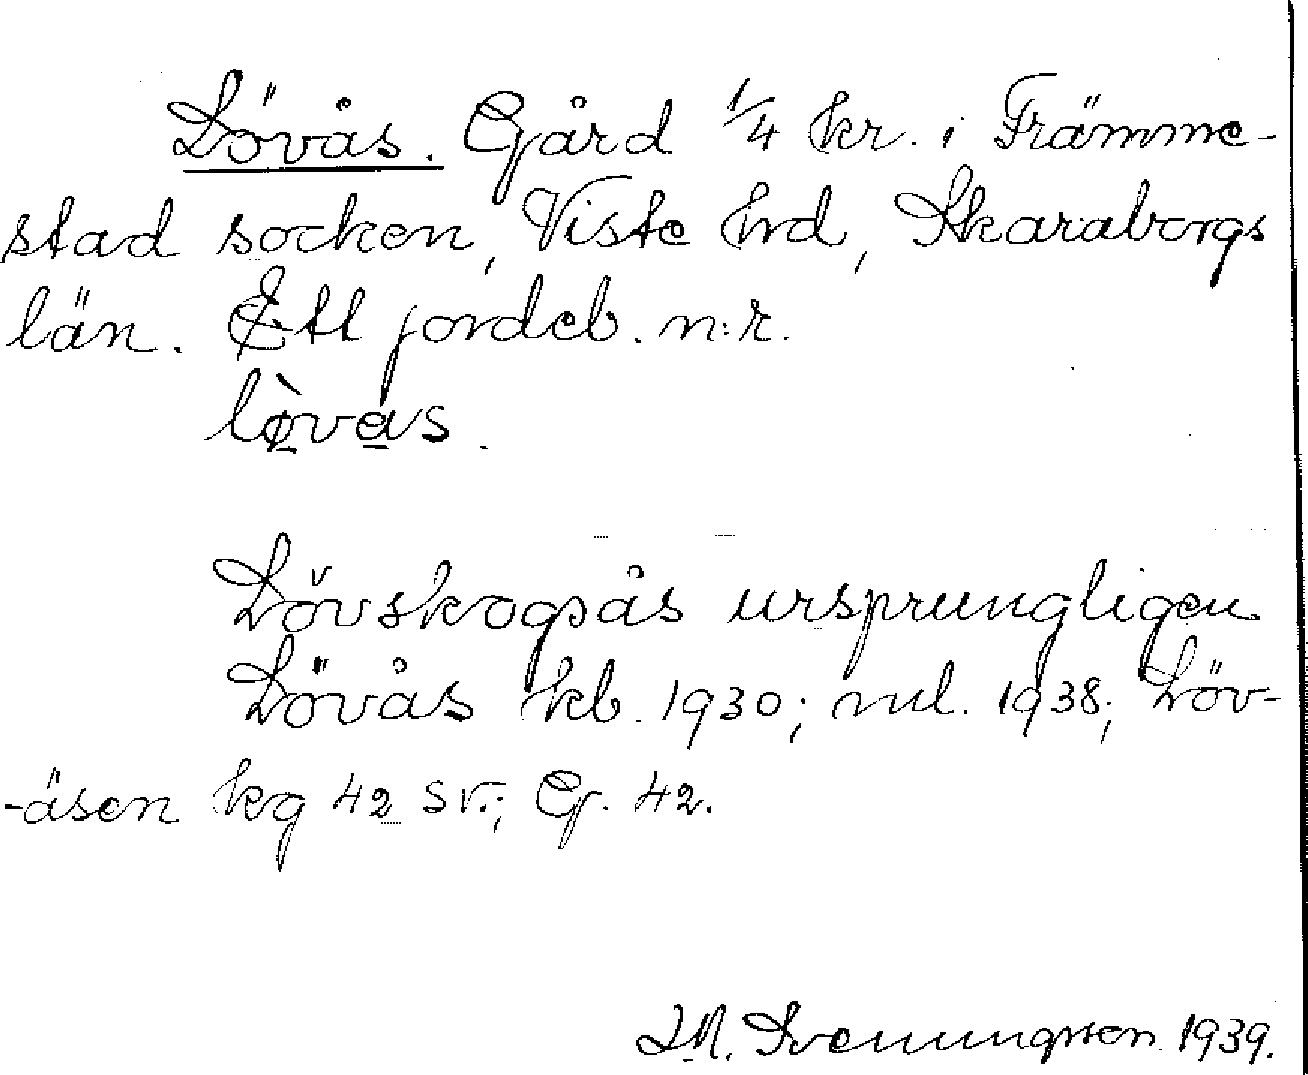 Lövås. Gård 1/4 kr. i Främme-
stad socken, Viste hrd, Skaraborgs
län. Ett jordeb. n:r.
lø̀vås.
Lövskogsås ursprungligen
Lövås kb. 1930; ml. 1938; Löv-
-åsen kg 42 sv.; G. 42.
Svenungsson 1939.